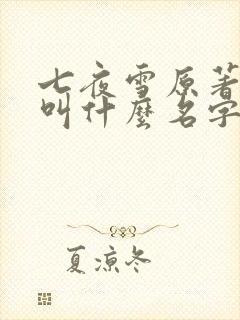 七夜雪原著
叫什麼名字
夏涼冬